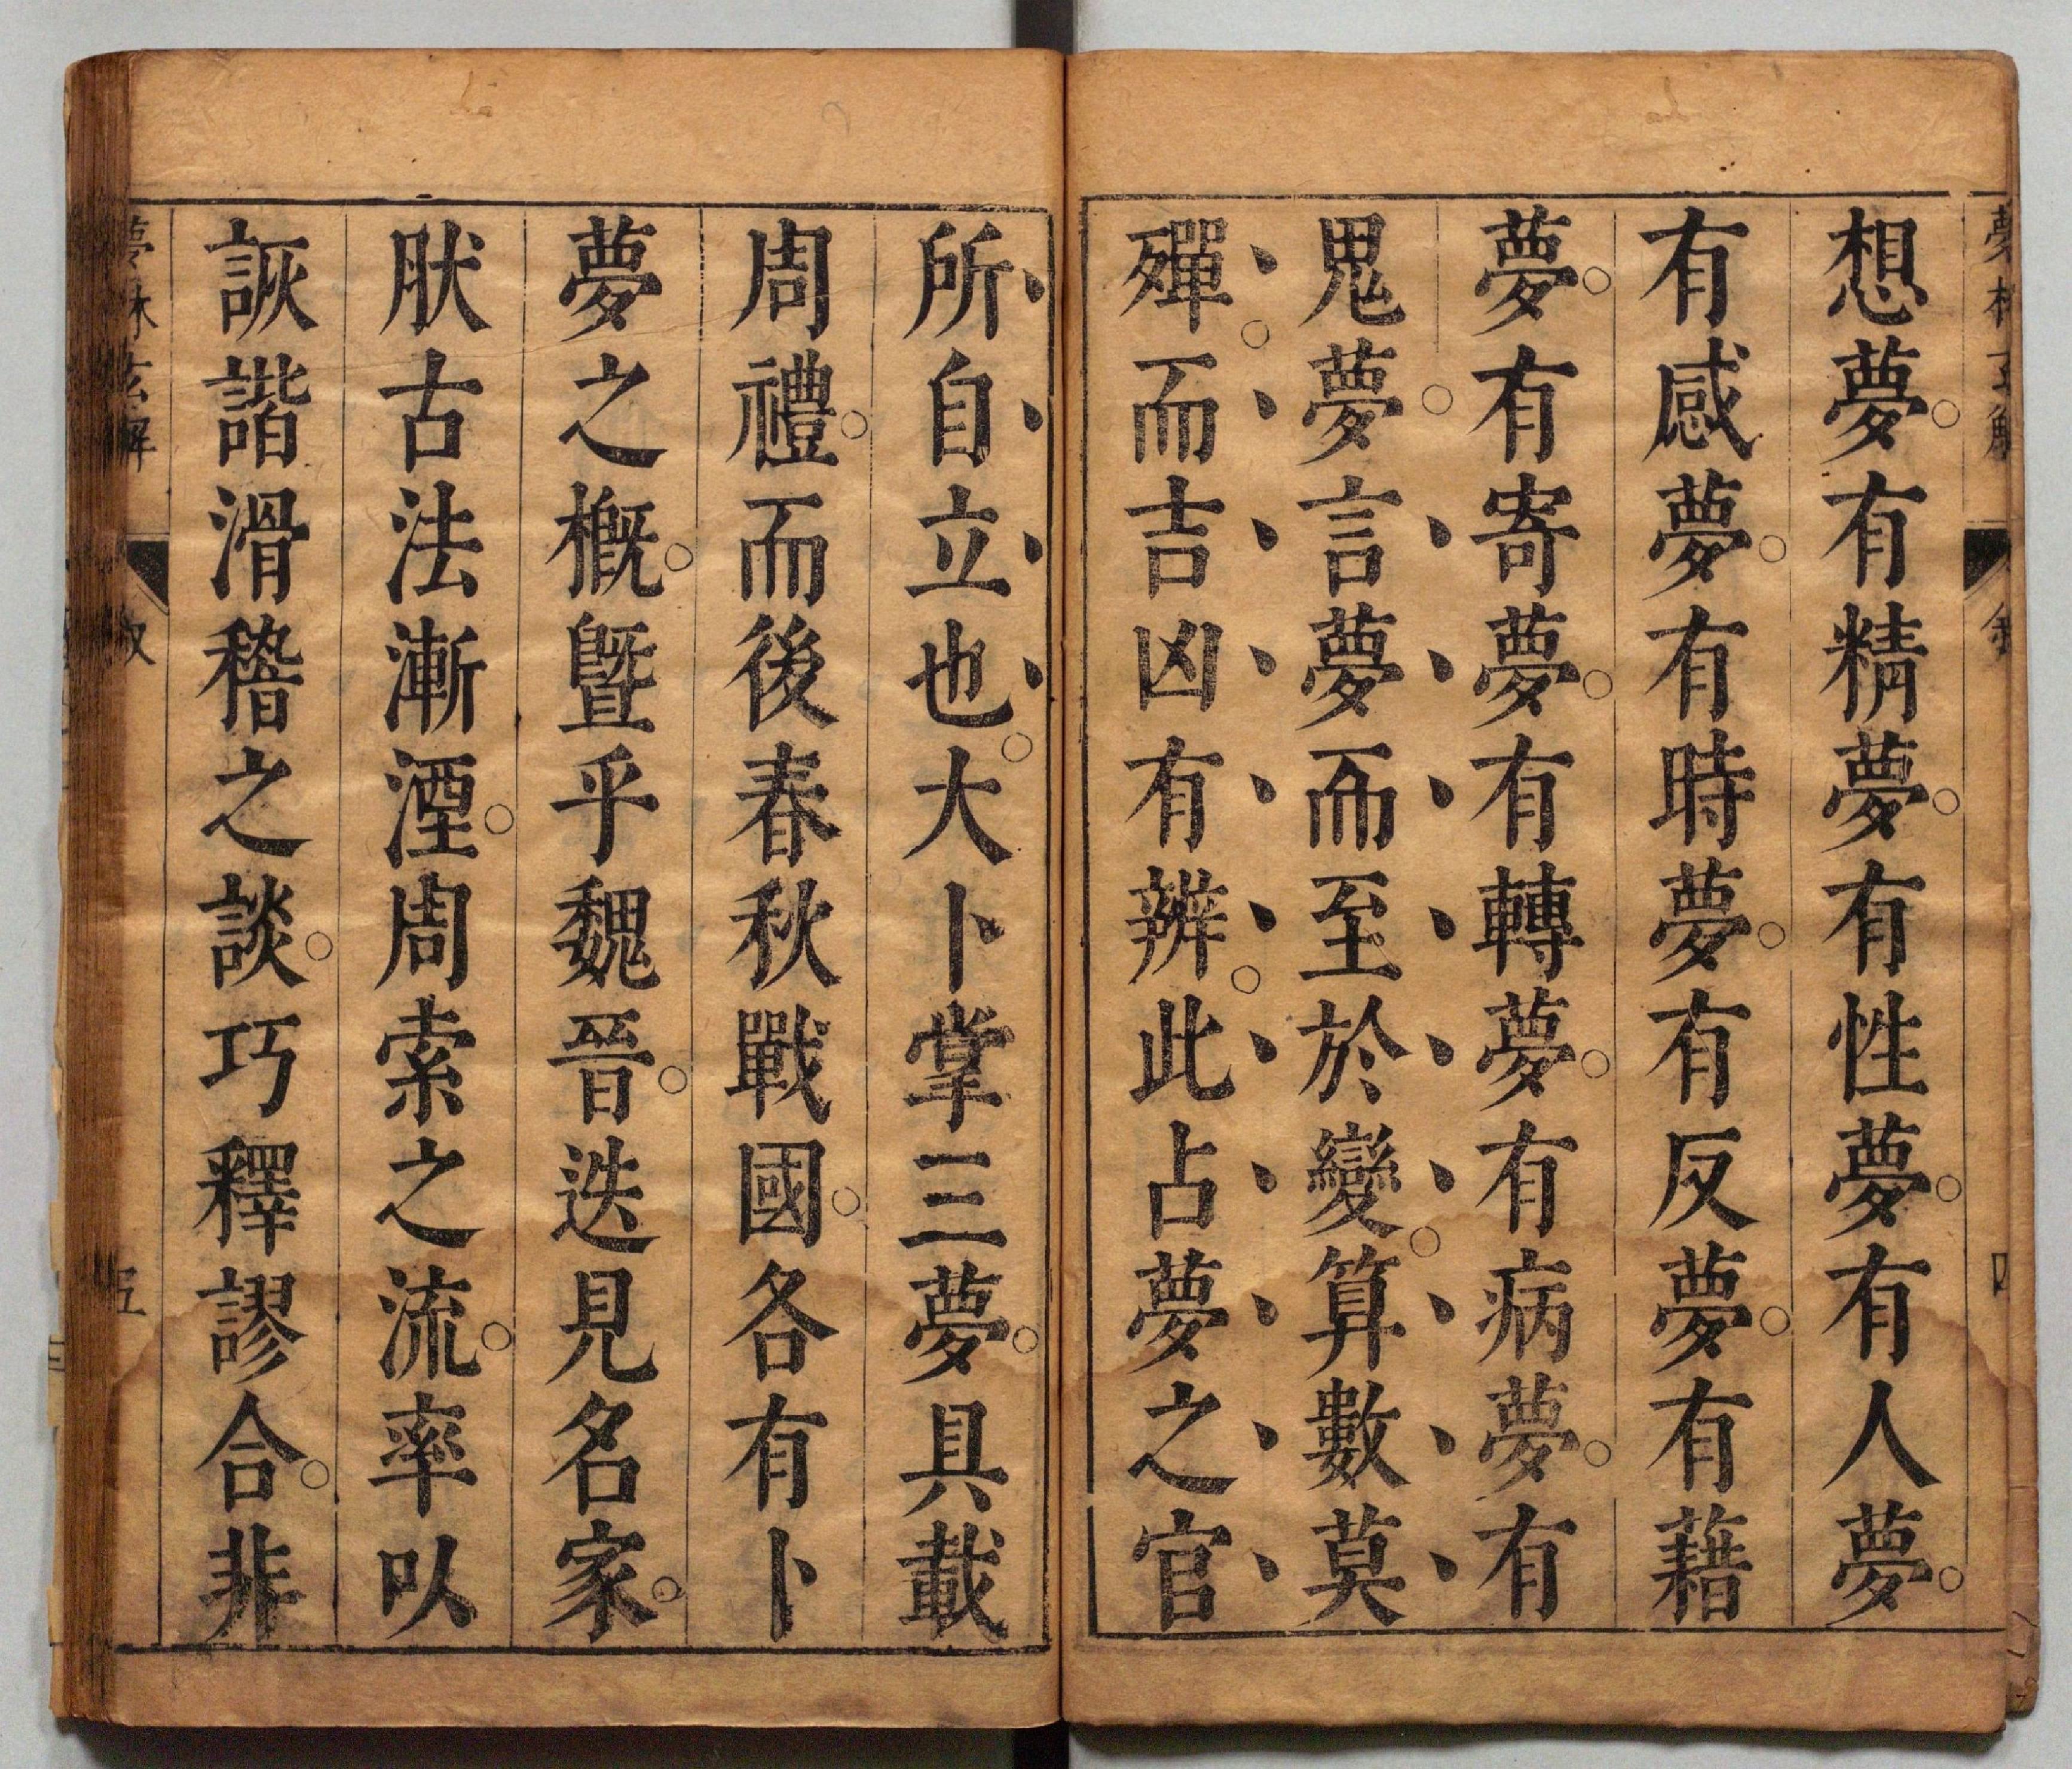 夢林玄解
叙
四
想夢有精夢有性夢有人夢
有感夢有時夢有反夢有藉
夢有寄夢有轉夢有病夢有
鬼夢言夢而至於變算數莫
殫而吉凶有辨此占夢之官
所自立也大卜掌三夢具載
周禮而後春秋戰國各有卜
夢之概暨乎魏晉迭見名家
肰古法漸湮周索之流率以
詼諧滑稽之談巧釋謬合非
夢林玄解
叙
五